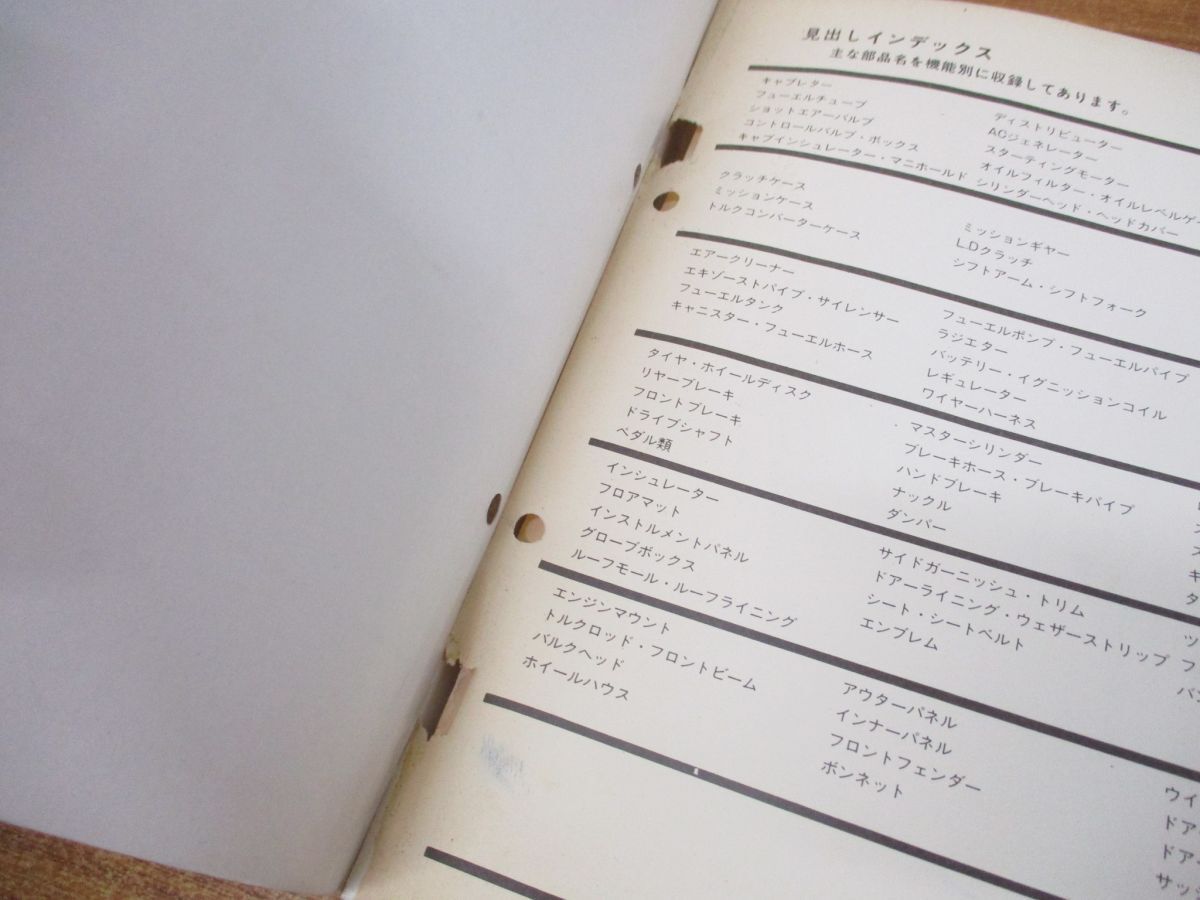 見出しインデックス
主な部品名を機能別に収録してあります。
キャブレター
フューエルチューブ
ショットエアーバルブ
コントロールバルブ・ボックス
キャブインシュレーター・マニホールド
ディストリビューター
ACジェネレーター
スターティングモーター
オイルフィルター・オイルレベルゲー
シリンダーヘッド・ヘッドカバー
クラッチケース
ミッションケース
トルクコンバーターケース
ミッションギヤー
L.Dクラッチ
シフトアーム・シフトフォーク
エアークリーナー
エキゾーストパイプ・サイレンサー
フューエルタンク
キャニスター・フューエルホース
フューエルポンプ・フューエルパイプ
ラジエター
バッテリー・イグニッションコイル
レギュレーター
ワイヤーハーネス
タイヤ・ホイールディスク
リヤーブレーキ
フロントブレーキ
ドライブシャフト
ペダル類
マスターシリンダー
ブレーキホース・ブレーキパイプ
ハンドブレーキ
ナックル
ダンパー
ス
キ
タ
インシュレーター
フロアマット
インストルメントパネル
グローブボックス
ルーフモール・ルーフライニング
サイドガーニッシュ・トリム
ドアーライニング・ウェザーストリップ
シート・シートベルト
エンブレム
ツ
フ
バン
エンジンマウント
トルクロッド・フロントビーム
バルクヘッド
ホイールハウス
アウターパネル
インナーパネル
フロントフェンダー
ボンネット
ウイ
ドア
ドア
サッシ